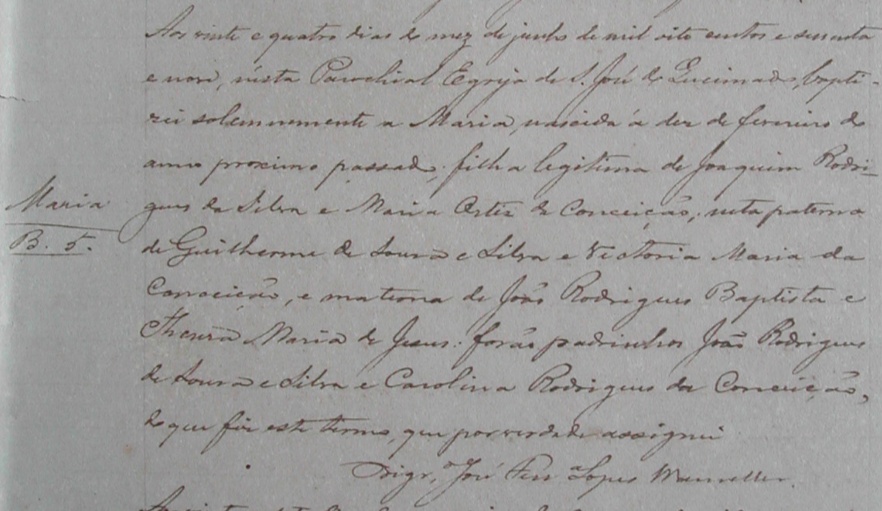 Aos vinte e quatro dias do mez de junho de mil oito centos e sessenta
e nove, nesta Parochial Egreja de S. José do Queimado, bapti-
zei solemnemente a Maria, nascida á dez de fevereiro do
anno proximo passado, filha legitima de Joaquim Rodri-
gues da Silva e Maria da Conceição; neta paterna
de Guilherme de Souza e Silva e Victoria Maria da
Conceição, e materna de João Rodrigues Baptista e
Thereza Maria de Jesus: forão padrinhos João Rodrigues
de Souza e Silva e Carolina Rodrigues da Conceição,
do que fiz este termo, que por verdade assignei
José Lopes
Maria
B. 5.